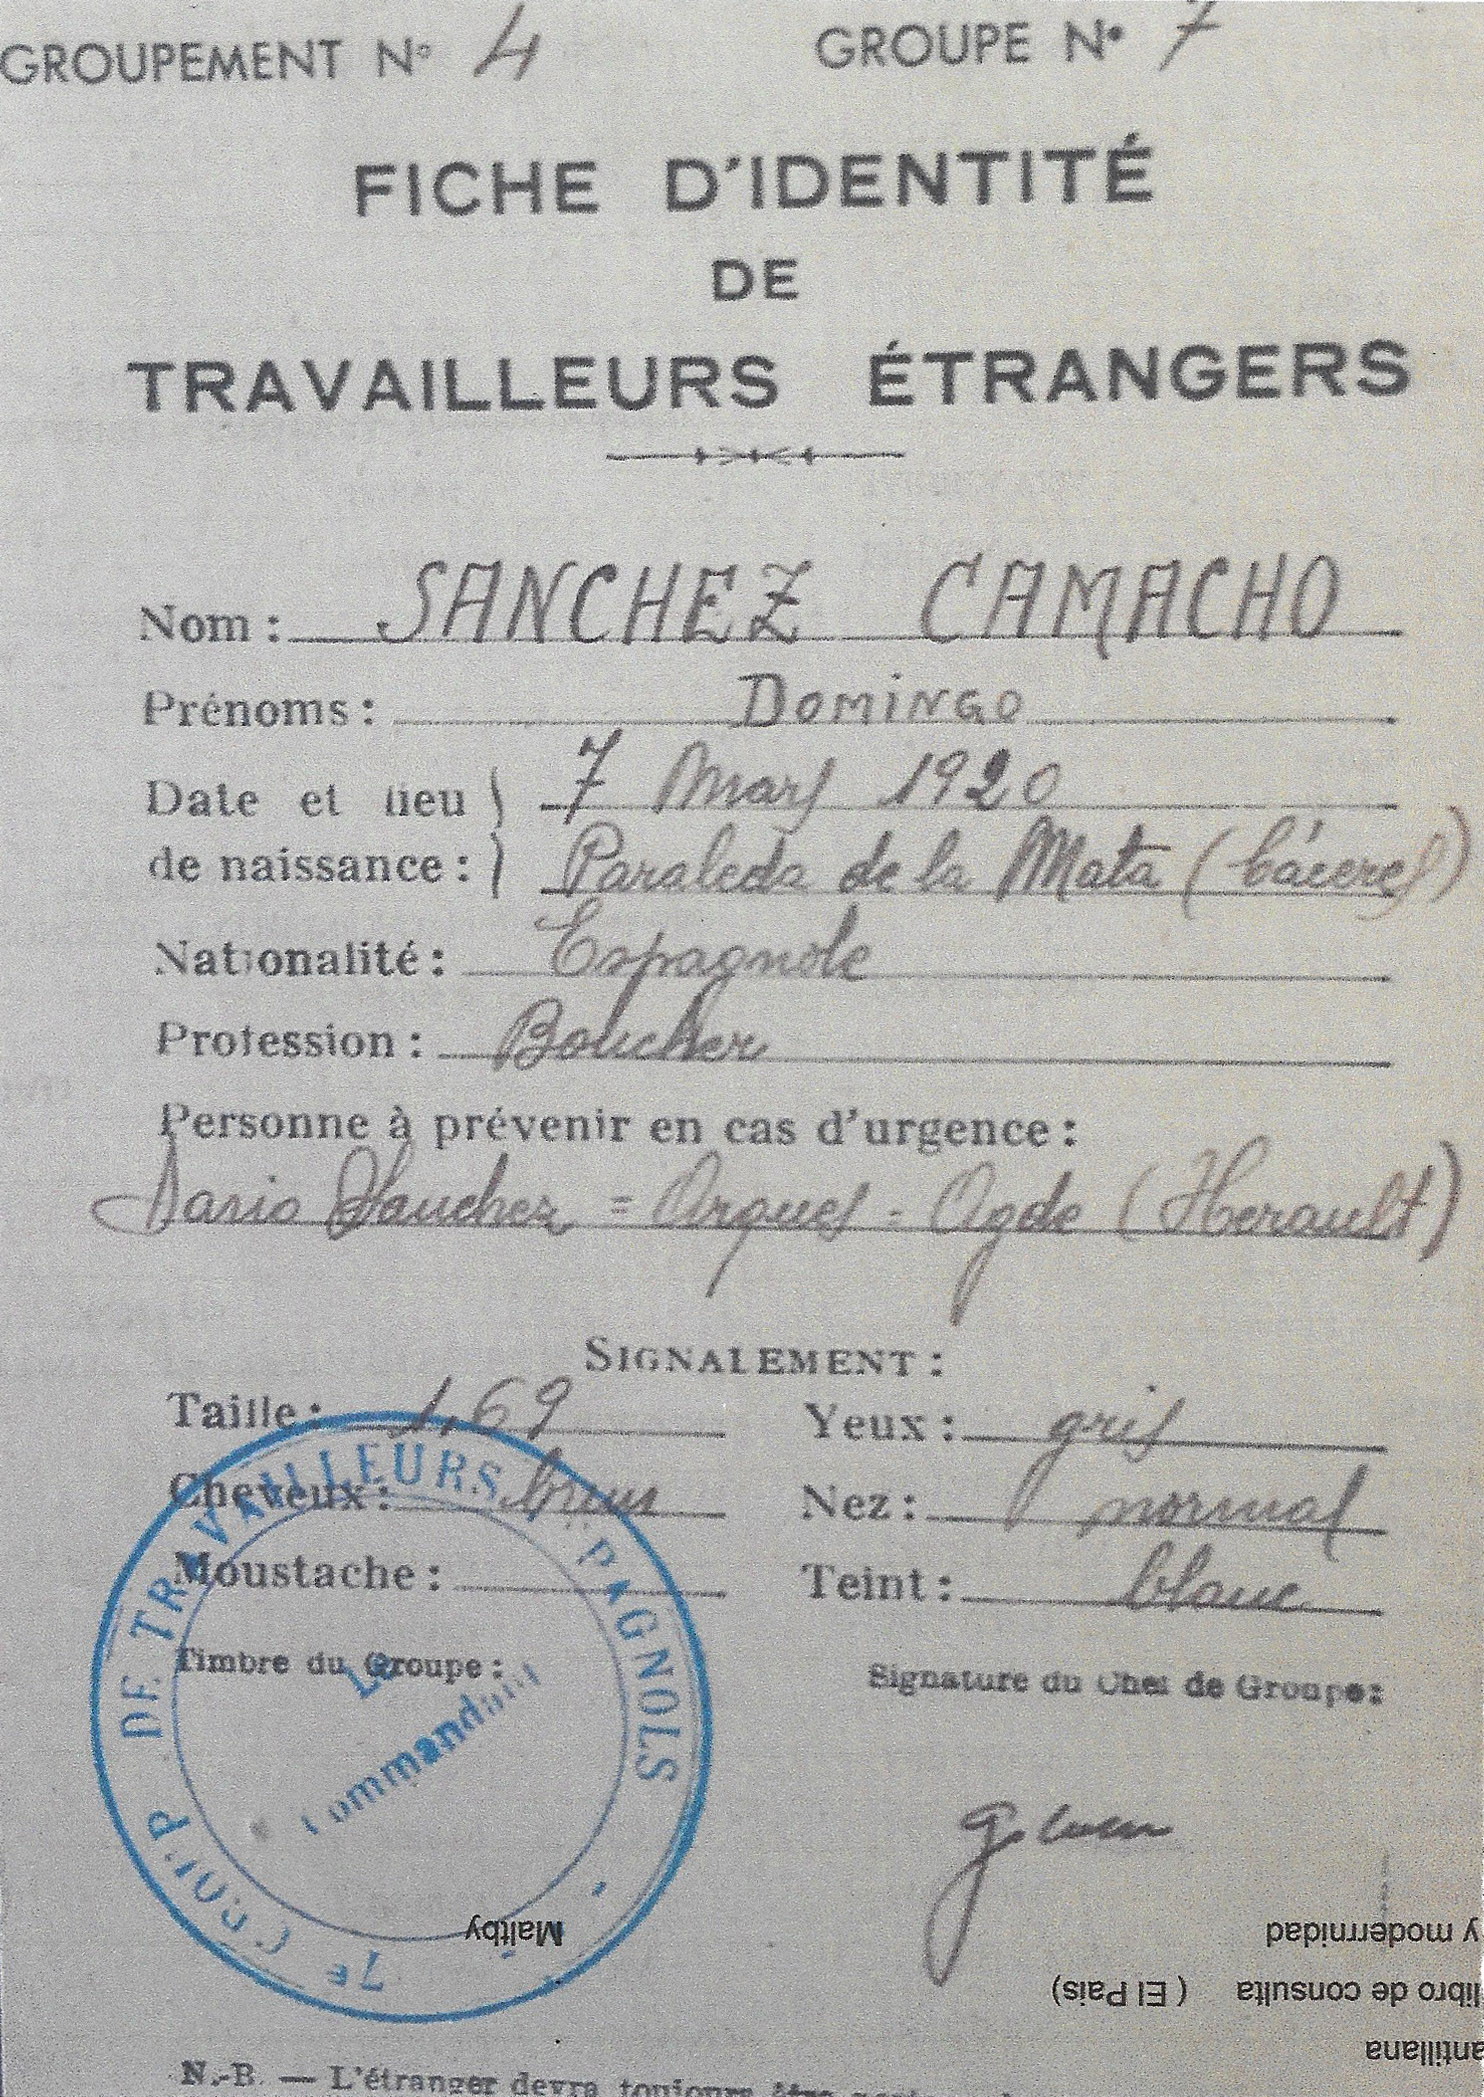 GROUPEMENT N° 4 GROUPE N° 7
FICHE D'IDENTITÉ
DE
TRAVAILLEURS ÉTRANGERS
Nom : SANCHEZ CAMACHO
Prénoms : DOMINGO
Date et lieu } 7 Mars 1920
de naissance : } Paraleda de la Mata (Cáceres)
Nationalité : Espagnole
Profession : Boucher
Personne à prévenir en cas d'urgence :
Dario Sanchez = Orques - Agde (Herault)
SIGNALEMENT :
Taille : 1,69 Yeux : gris
Cheveux : brun Nez : normal
Moustache : Teint : blanc
Timbre du Groupe : Signature du Chef de Groupe :
7E GROUP DE TRAVAILLEURS ESPAGNOLS
Le
Commandant
Maltby
y modernidad
libro de consulta ( El Pais)
antillana
N.-B. — L'étranger devra toujours être